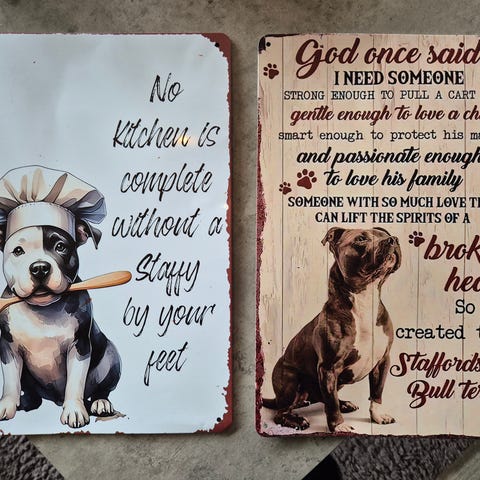 No
Kitchen is
complete
without a
Staffy
by your
feet
God once said
I NEED SOMEONE
STRONG ENOUGH TO PULL A CART
gentle enough to love a
smart enough to protect his
and passionate enough
to love his family
SOMEONE WITH SO MUCH LOVE
CAN LIFT THE SPIRITS OF A
So
created
Bull